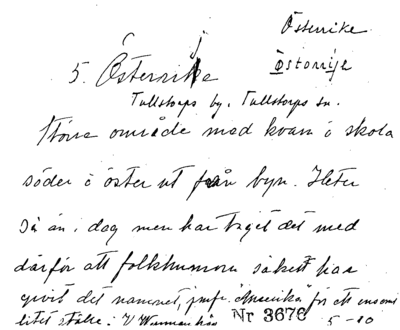 Österrike
Östorrije
5. Österrike
Tullstorps by. Tullstorps sn.
Större område med kvarn o skola
söder o öster ut från byn. Heter
så än i dag men har taget det med
därför att folkhumorn säkert har
givit det namnet, jmfr. Amerika för att en som
litet ställe i V Wemmenhög Nr 3676 5-10